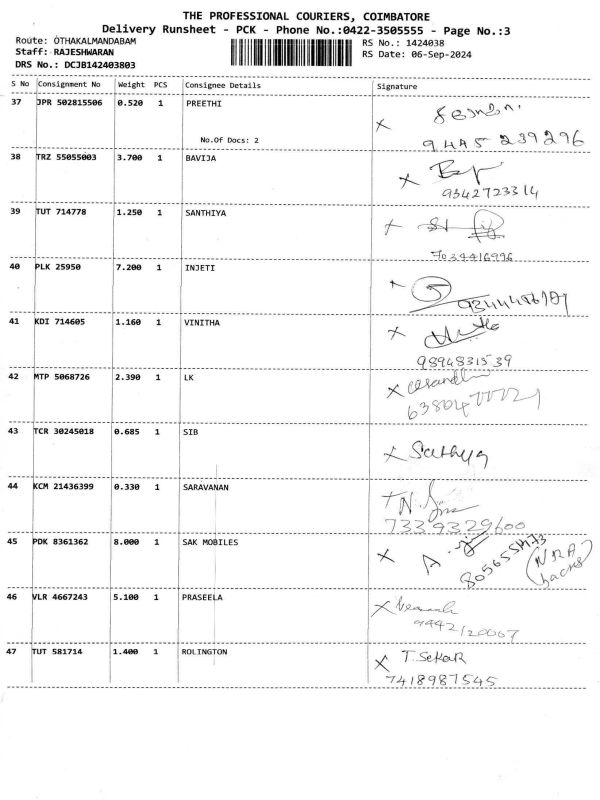 THE PROFESSIONAL COURIERS, COIMBATORE
Delivery Runsheet - PCK - Phone No.:0422-3505555 - Page No.:3
Route: OTHAKALMANDABAM
Staff: RAJESHWARAN
DRS No.: DCJB142403803
RS No.: 1424038
RS Date: 06-Sep-2024
S No Consignment No Weight PCS Consignee Details Signature
37 JPR 502815506 0.520 1 PREETHI
No.Of Docs: 2
9445 239296
38 TRZ 55055003 3.700 1 BAVIJA
9342723314
39 TUT 714778 1.250 1 SANTHIYA
7034416996
40 PLK 25950 7.200 1 INJETI
41 KDI 714605 1.160 1 VINITHA
9894831539
42 MTP 5068726 2.390 1 LK
43 TCR 30245018 0.685 1 SIB
X Sathya
44 KCM 21436399 0.330 1 SARAVANAN
7339329600
45 PDK 8361362 8.000 1 SAK MOBILES
46 VLR 4667243 5.100 1 PRASEELA
47 TUT 581714 1.400 1 ROLINGTON
X T.Sekar
7418987545